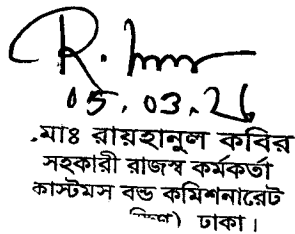 05.03.26
মোঃ রায়হানুল কবির
সহকারী রাজস্ব কর্মকর্তা
কাস্টমস বন্ড কমিশনারেট
ঢাকা।